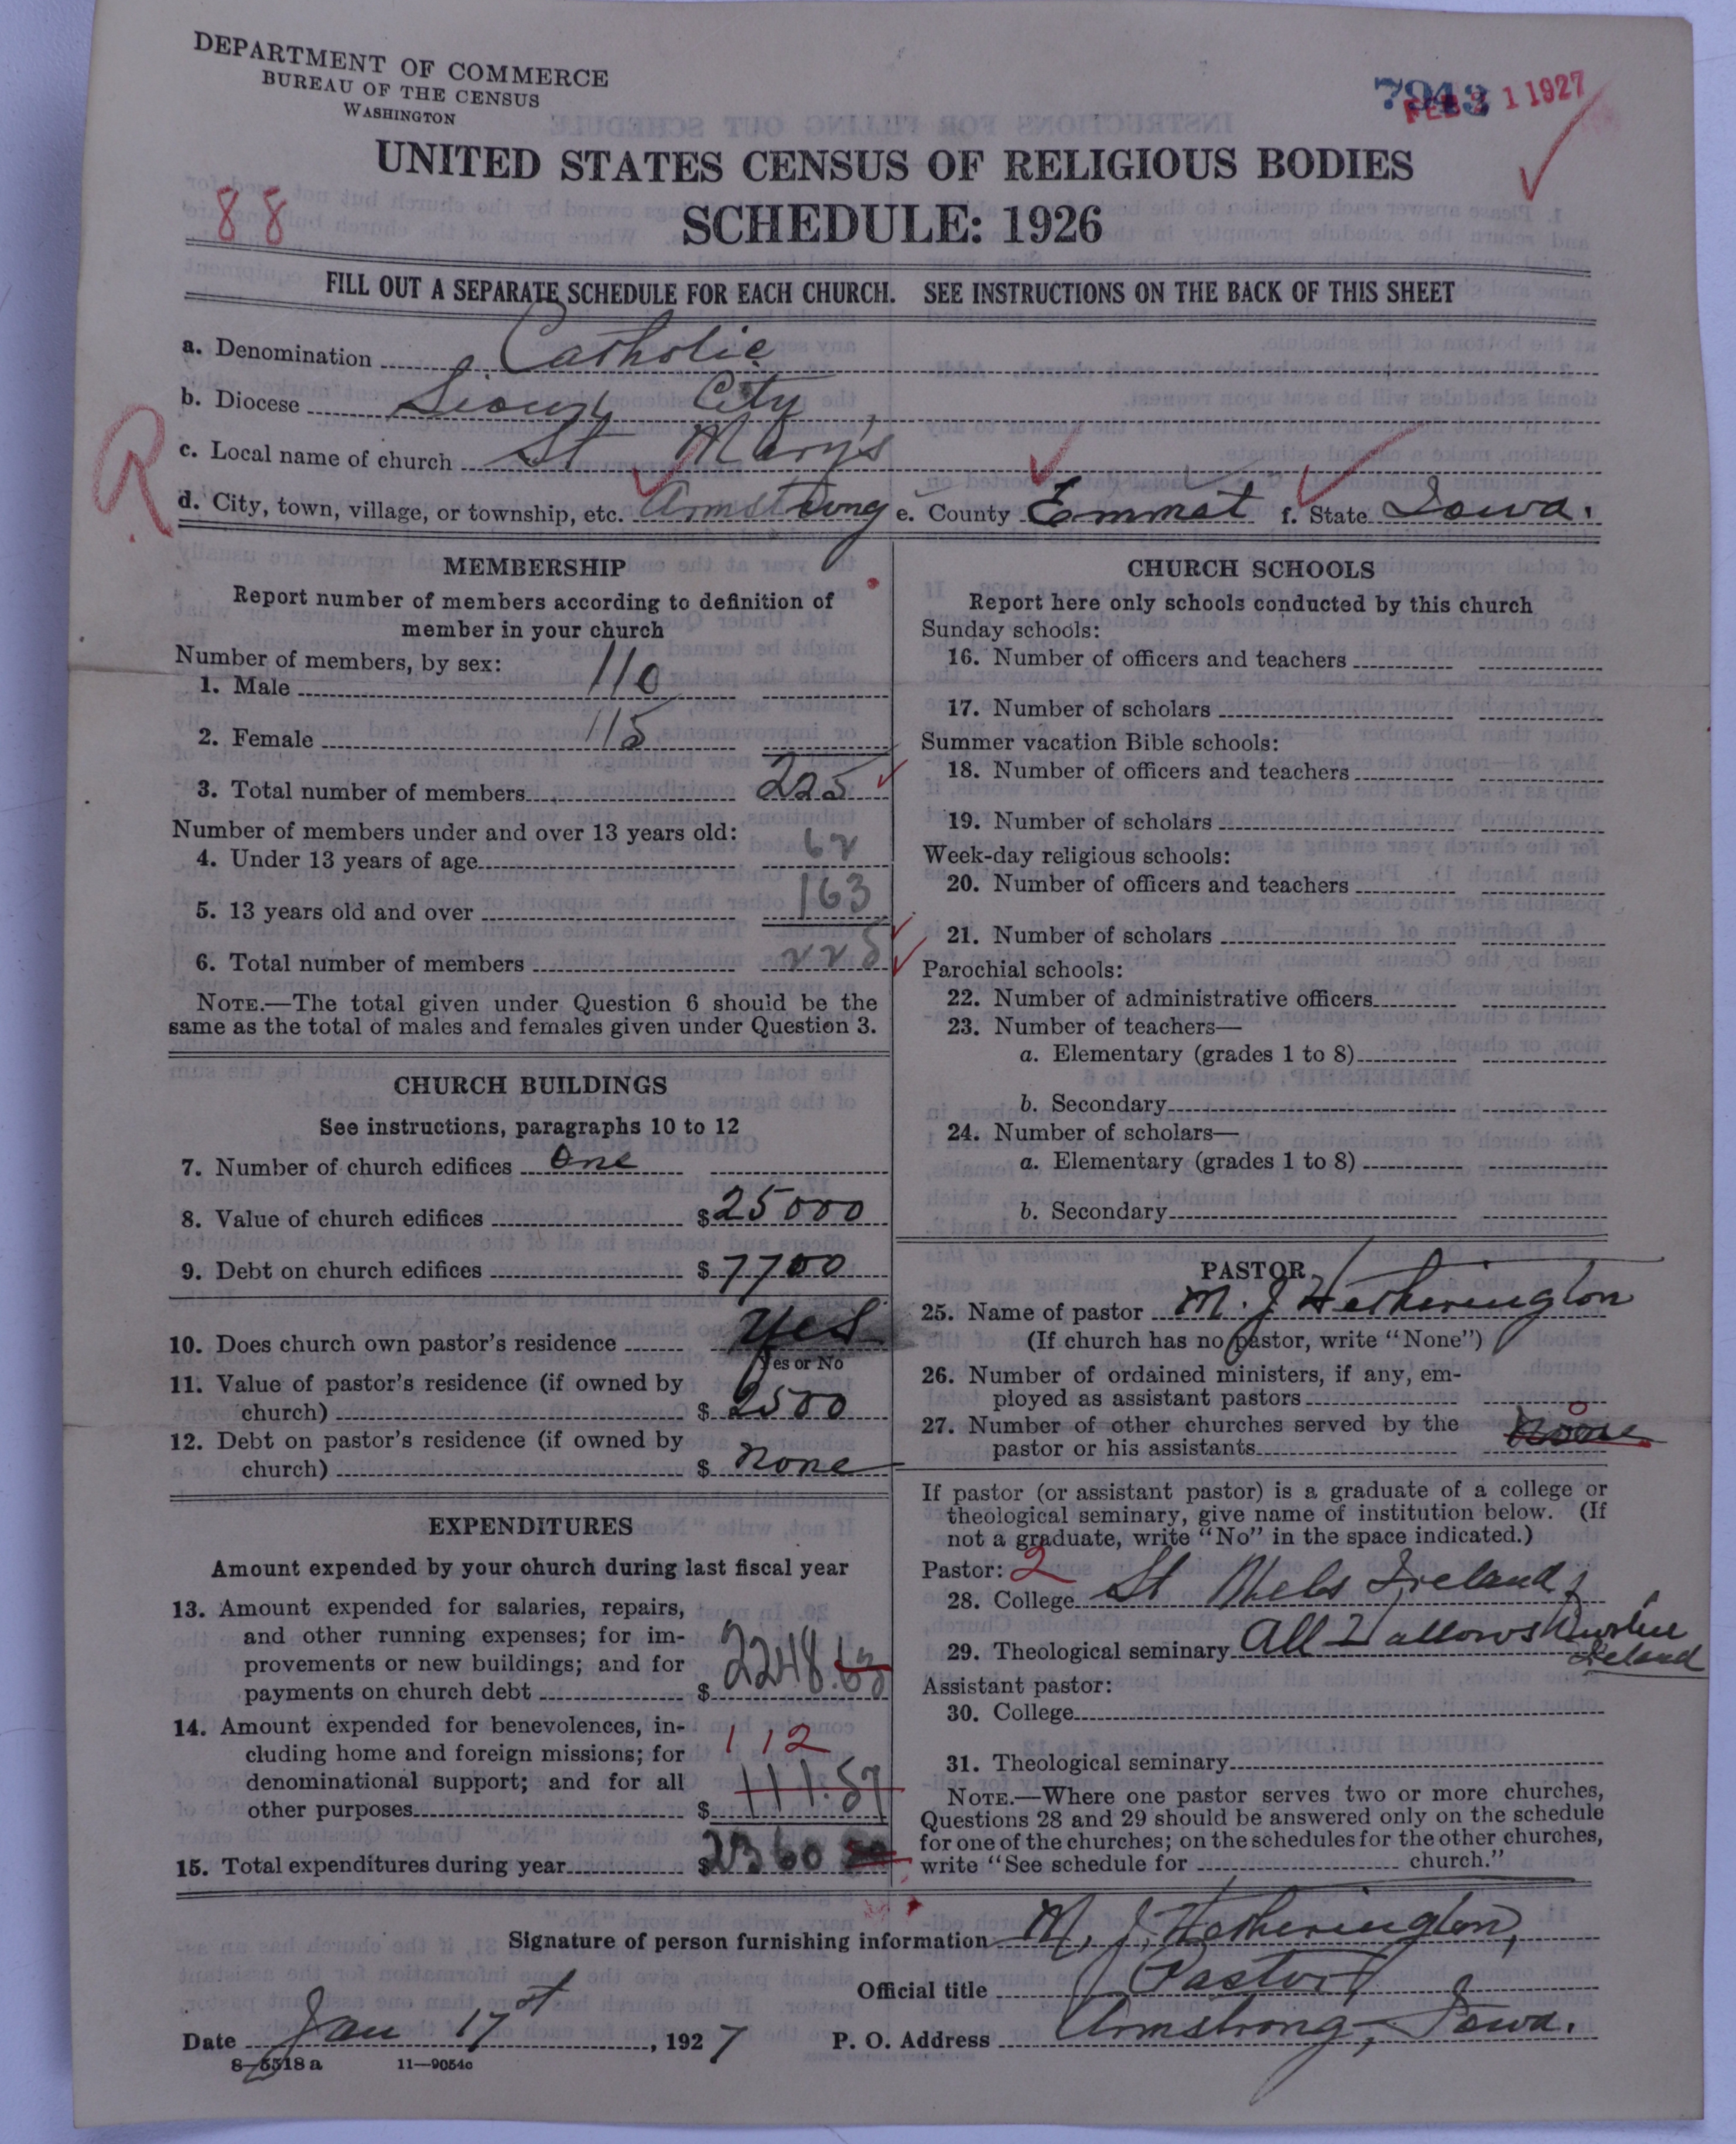 DEPARTMENT OF COMMERCE
BUREAU OF THE CENSUS
WASHINGTON
7943
FEB 1 1927
UNITED STATES CENSUS OF RELIGIOUS BODIES
88
SCHEDULE: 1926
FILL OUT A SEPARATE SCHEDULE FOR EACH CHURCH. SEE INSTRUCTIONS ON THE BACK OF THIS SHEET
a. Denomination Catholic
b. Diocese Sioux City
R
c. Local name of church St Mary's
d. City, town, village, or township, etc. Armstrong e. County Emmet f. State Iowa.
MEMBERSHIP
Report number of members according to definition of
member in your church
Number of members, by sex:
1. Male 110
2. Female 115
3. Total number of members 225
Number of members under and over 13 years old:
4. Under 13 years of age 62
5. 13 years old and over 163
6. Total number of members 225
NOTE.—The total given under Question 6 should be the
same as the total of males and females given under Question 3.
CHURCH BUILDINGS
See instructions, paragraphs 10 to 12
7. Number of church edifices One
8. Value of church edifices $25000
9. Debt on church edifices $7700
10. Does church own pastor's residence Yes
Yes or No
11. Value of pastor's residence (if owned by
church) $2500
12. Debt on pastor's residence (if owned by
church) $none
EXPENDITURES
Amount expended by your church during last fiscal year
13. Amount expended for salaries, repairs,
and other running expenses; for im-
provements or new buildings; and for
payments on church debt $2248.63
14. Amount expended for benevolences, in-
cluding home and foreign missions; for
denominational support; and for all
other purposes $111.57
112
15. Total expenditures during year $2360
CHURCH SCHOOLS
Report here only schools conducted by this church
Sunday schools:
16. Number of officers and teachers
17. Number of scholars
Summer vacation Bible schools:
18. Number of officers and teachers
19. Number of scholars
Week-day religious schools:
20. Number of officers and teachers
21. Number of scholars
Parochial schools:
22. Number of administrative officers
23. Number of teachers—
a. Elementary (grades 1 to 8)
b. Secondary
24. Number of scholars—
a. Elementary (grades 1 to 8)
b. Secondary
PASTOR
25. Name of pastor M. J. Hetherington
(If church has no pastor, write "None")
26. Number of ordained ministers, if any, em-
ployed as assistant pastors
27. Number of other churches served by the
pastor or his assistants None
0
If pastor (or assistant pastor) is a graduate of a college or
theological seminary, give name of institution below. (If
not a graduate, write "No" in the space indicated.)
Pastor: 2
28. College St Mels Ireland
29. Theological seminary All Hallows Dublin
Ireland
Assistant pastor:
30. College
31. Theological seminary
NOTE.—Where one pastor serves two or more churches,
Questions 28 and 29 should be answered only on the schedule
for one of the churches; on the schedules for the other churches,
write "See schedule for church."
Signature of person furnishing information M. J. Hetherington,
Official title Pastor
Date Jan 17st, 1927 P. O. Address Armstrong, Iowa.
8-5518 a 11-9054c